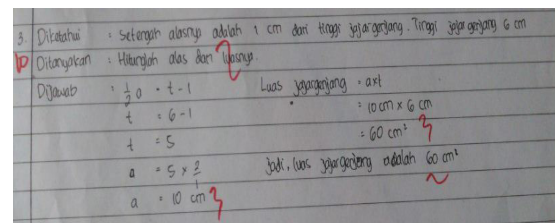 3. Diketahui : Setengah alasnya adalah 1 cm dari tinggi jajargenjang. Tinggi jajargenjang 6 cm
10 Ditanyakan : Hitunglah alas dan luasnya.
Dijawab : 1/2 a = t - 1
t = 6 - 1
t = 5
a = 5 x 2/1
a = 10 cm
Luas jajargenjang = axt
= 10 cm x 6 cm
= 60 cm²
Jadi, luas jajargenjang adalah 60 cm²